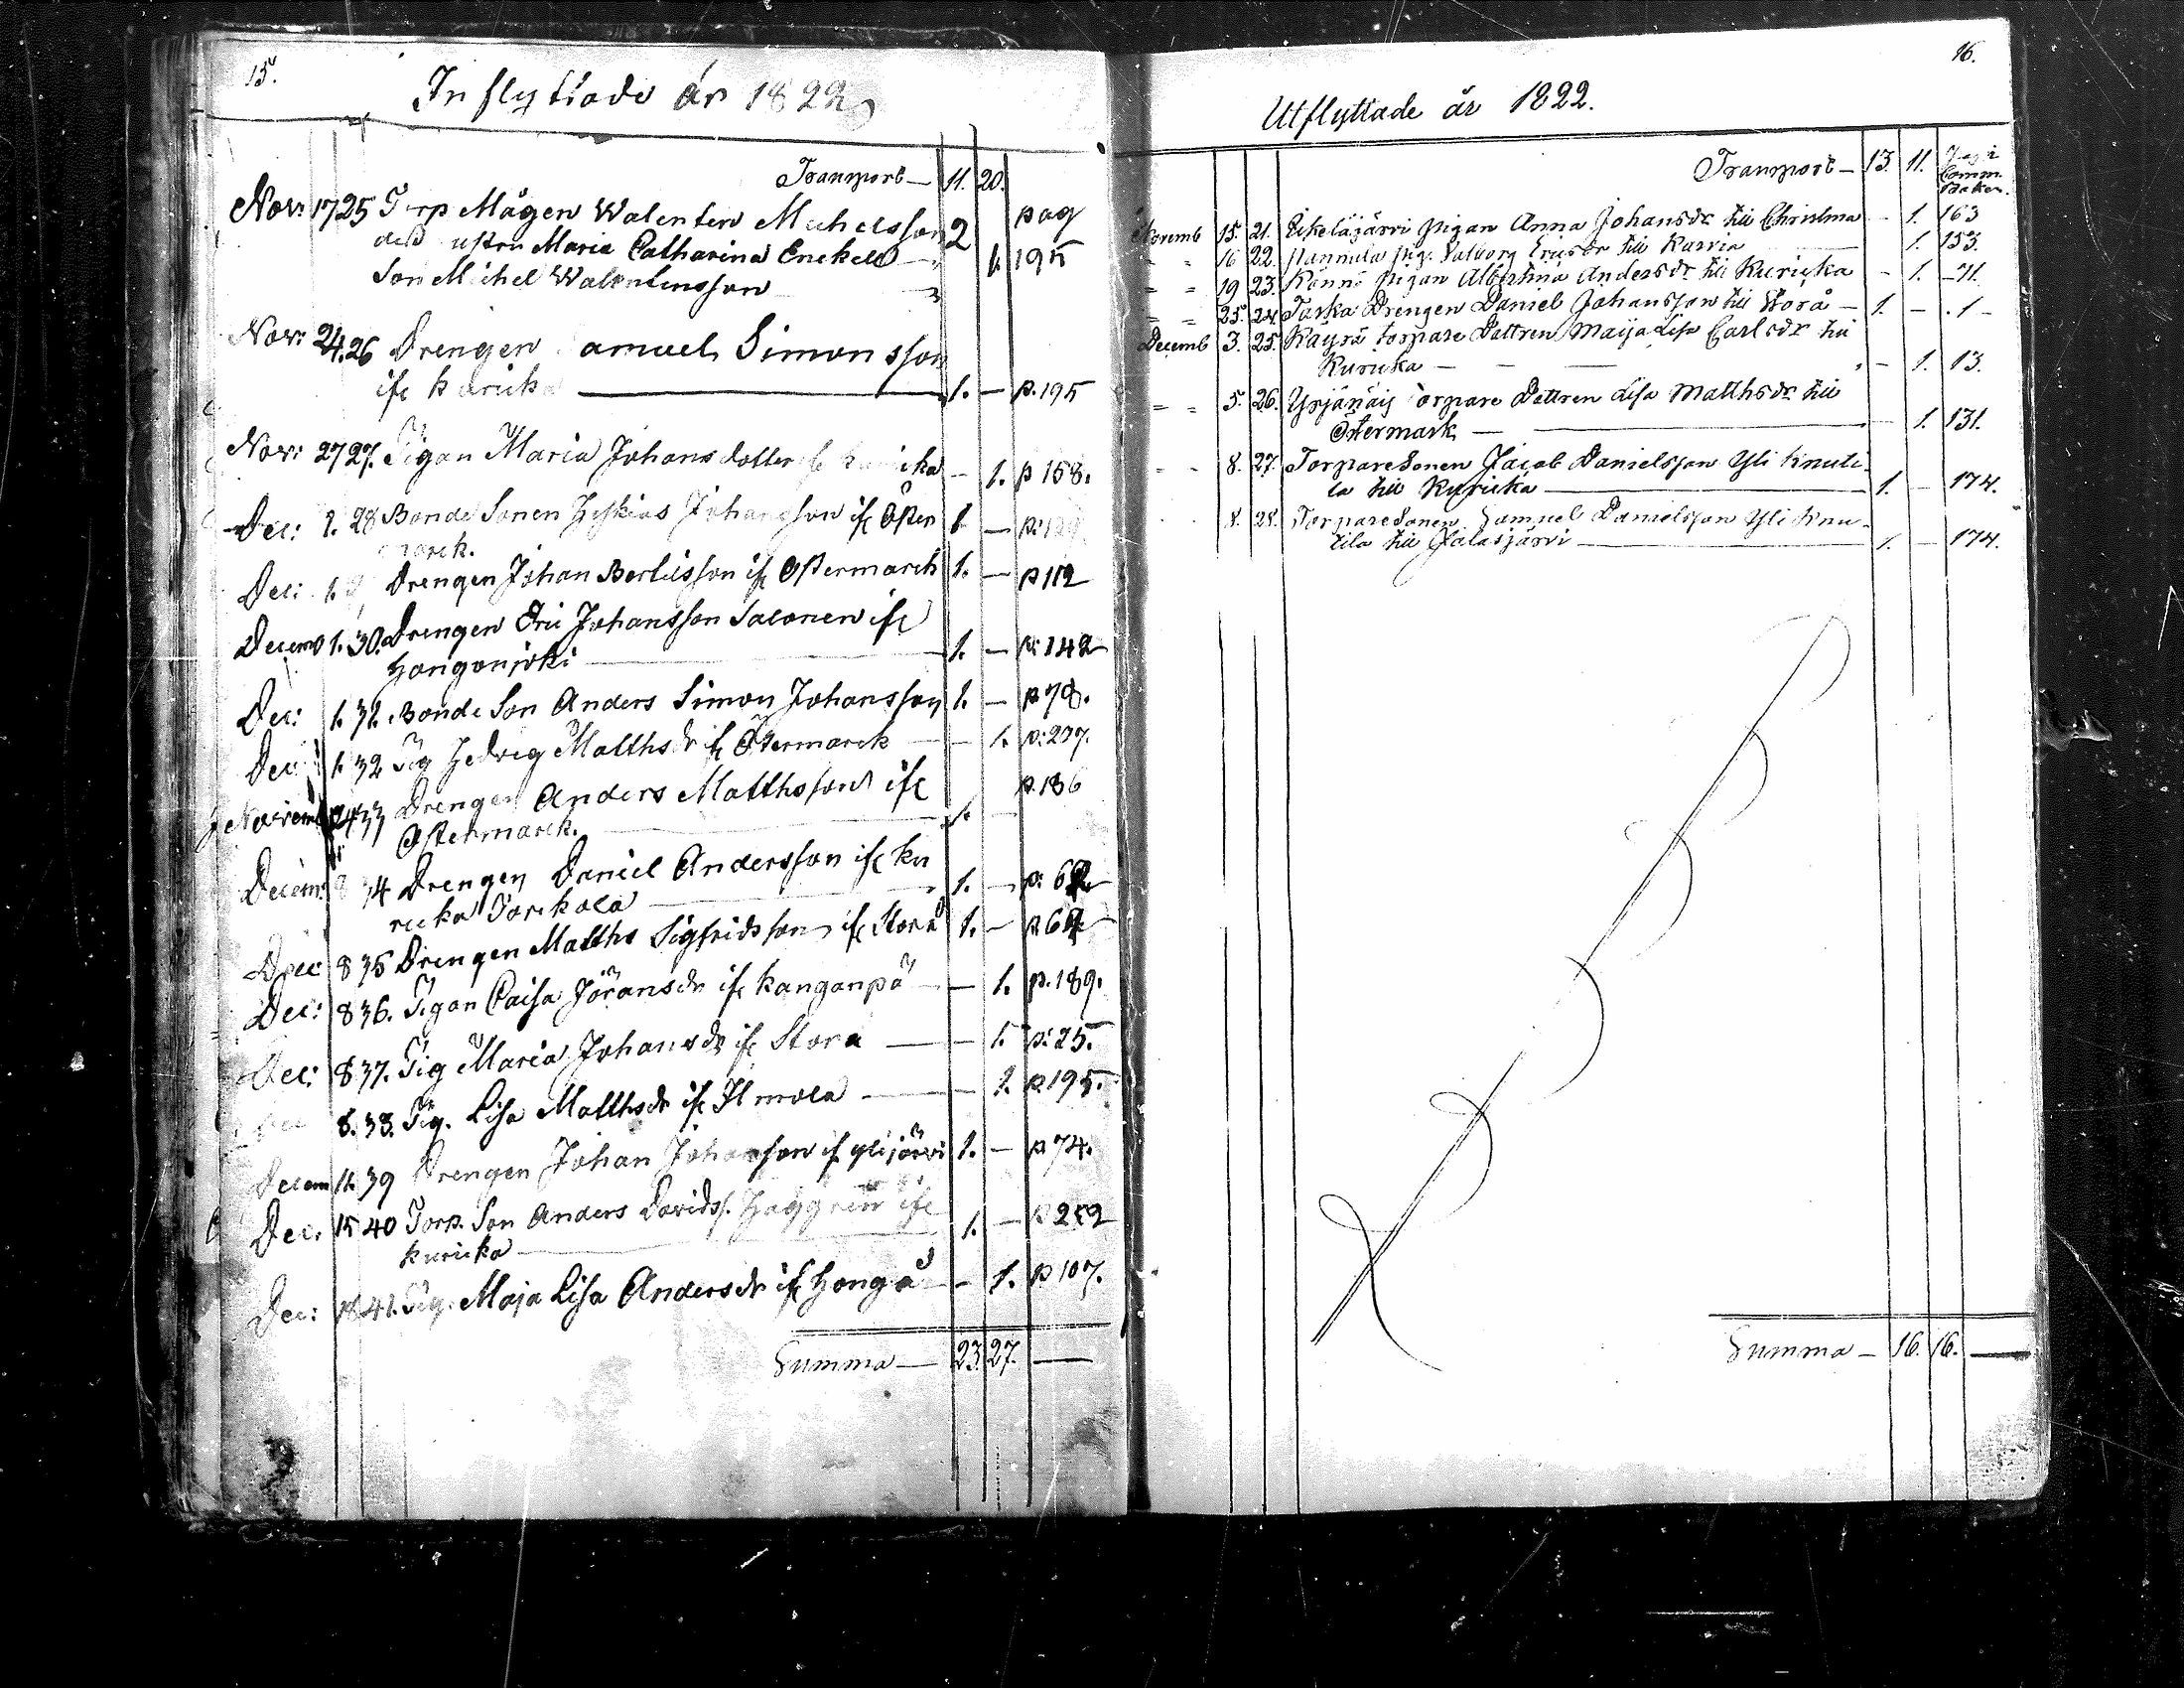 15.
Inflyttade år 1822
Transport — 11. 20.
Nov: 17 25 Torp Mågen Walenten Michelsson 2 pag
dess ustru Maria Catharina Enckell — 1. 195
Son Michel Walentinsson
Nov: 24. 26 Drengen Samuel Simonsson
ifr kuricka — 1. — p. 195
Nov: 27 27. Pigan Maria Johansdotter ifr kuricka — 1. p 158.
Dec: 1. 28 Bonde Sonen Heskias Johansson ifr Öster 1 —
marck.
Dec: 1. Drengen Johan Bertilsson ifr Östermarck 1. — p 112
Decemb 1. 30. Drengen Eric Johansson Salonen ifr
Hongonjoki — 1. — p: 142
Dec: 1. 31. Bonde Son Anders Simon Johansson 1. — p 78.
Dec: 1. 32 Pig Hedvig Matthsdr ifr Östermarck — 1. p: 237.
Novemb 24 33 Drengen Anders Matthsson ifr p. 186
Östermarck. — 1. —
Decem: 8 34 Drengen Daniel Andersson ifr ku
ricka Tarikala — 1. — p: 62
Dec: 8 35 Drengen Matths Sigfridsson ifr Storå 1. — p 62
Dec: 8 36. Pigan Caisa Jöransdr ifr kanganpä — 1. p. 189.
Dec: 8 37. Pig Maria Johansdr ifr Stora — 1. p: 25.
Dec 8. 38. Pig. Lisa Matthsdr ifr Ilmola — 1. p 195.
Decem 11. 39 Drengen Johan Johansson if ylijärvi 1. — p 74.
Dec. 15 40 Torp. Son Anders Davidss. Häggren ifr
kuricka — 1. — p 252
Dec: 18 41. Pig. Maja Lisa Andersdr ifr Hongå — 1. p 107.
Summa — 23. 27. —
16.
Utflyttade år 1822.
Transport — 13. 11. Pag i
Comm.
Boken.
Novemb 15. 21. Ikeläjärvi pigan Anna Johansdr till Christina — 1. 163
" " 16 22. Hannula pig. Valborg Ericsdr till Karvia — 1. 153.
" " 19 23. Könnö pigan Albertina Andersdr till Kuricka — 1. — 71.
" " 25. 24. Tarka Drengen Daniel Johansson till Storå — 1. — . 1 —
Decemb 3. 25. Käyrä torpare Dottren Maija Lisa Carlsdr till
Kuricka — — 1. 13.
" " 5. 26. Yrjänäis Torpare Dottren Lisa Matthsdr till
Östermark — — 1. 131.
" " 8. 27. TorpareSonen Jacob Danielsson Yli Knuti-
la till Kuricka — 1. — 174.
8. 28. TorpareSonen Samuel Danielsson Yli Knu-
tila till Jalasjärvi — 1. — 174.
Summa — 16. 16. —